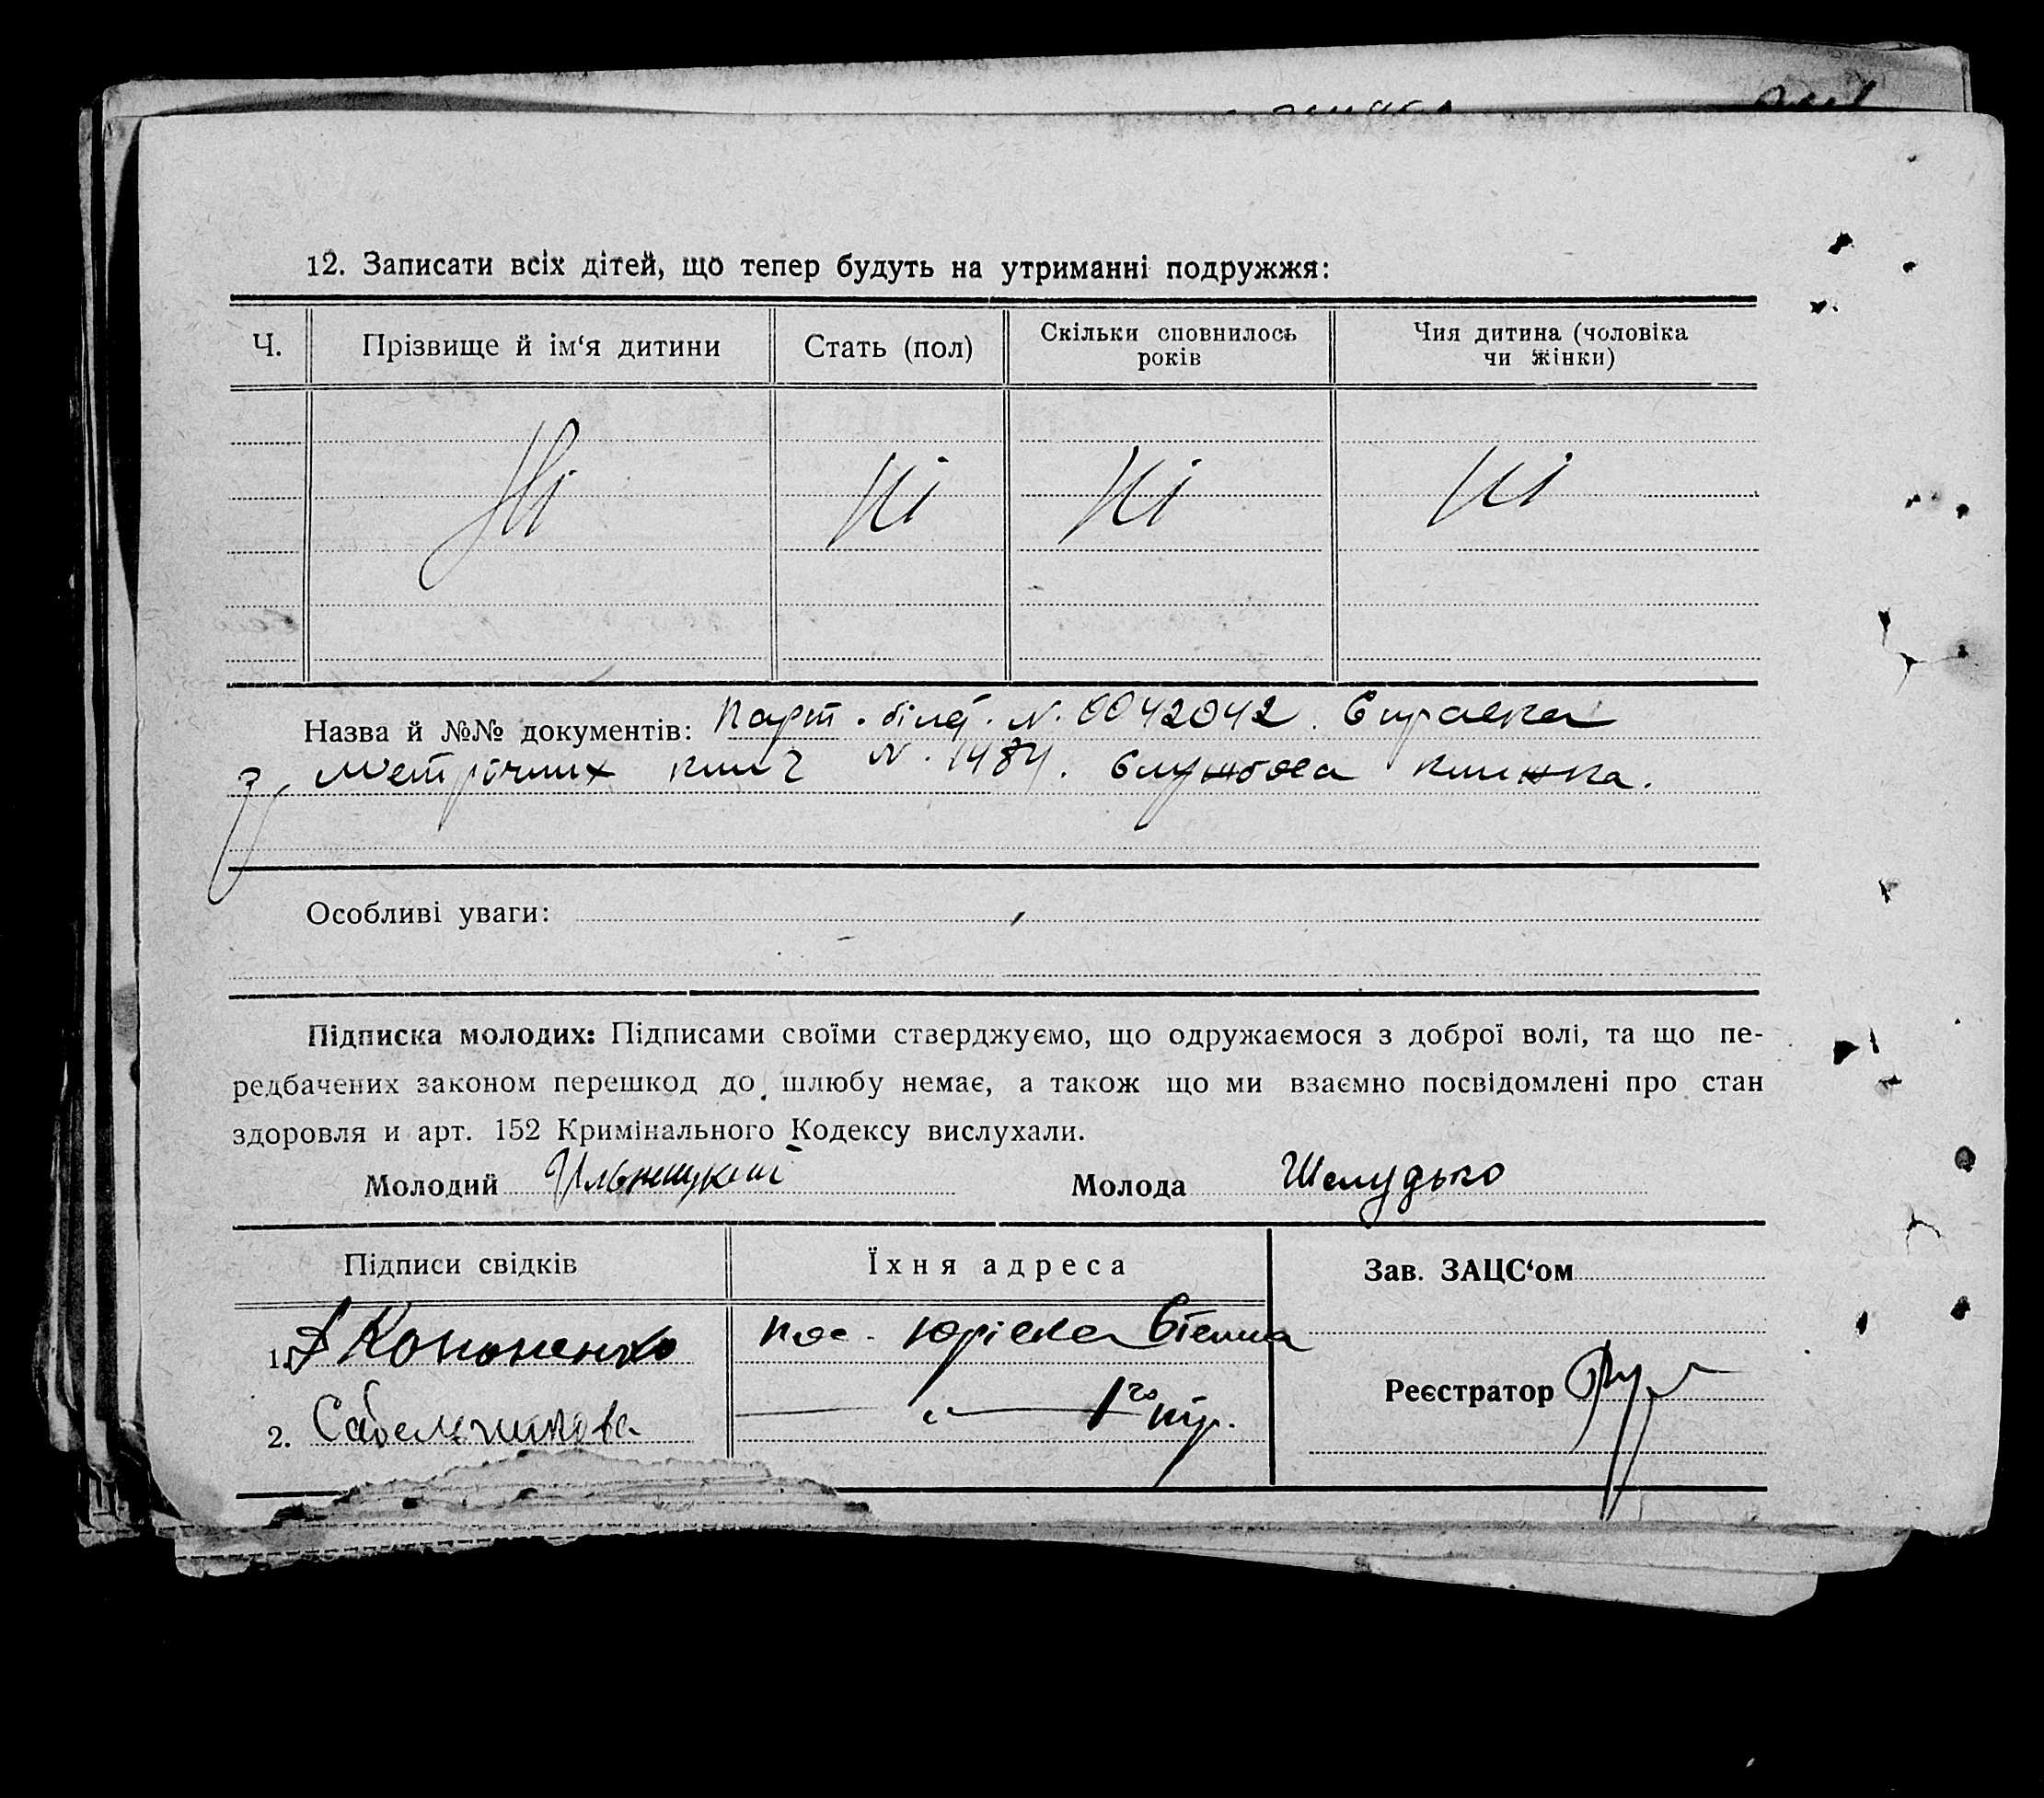 12. Записати всіх дітей, що тепер будуть на утриманні подружжя:
Ч. Прізвище й ім‘я дитини Стать (пол) Скільки сповнилось років Чия дитина (чоловіка чи жінки)
Ні Ні Ні Ні
Назва й №№ документів: Парт. білет. N. 0042042. Справка
з Метрічних книг N. 1484. Службова книжка.
Особливі уваги:
Підписка молодих: Підписами своїми стверджуємо, що одружаємося з доброї волі, та що пе-
редбачених законом перешкод до шлюбу немає, а також що ми взаємно посвідомлені про стан
здоровля и арт. 152 Кримінального Кодексу вислухали.
Молодий Молода Шелудько
Підписи свідків Їхня адреса Зав. ЗАЦС‘ом
1. Кононенко пос. Юріевка
2. Сабельникова
Реєстратор